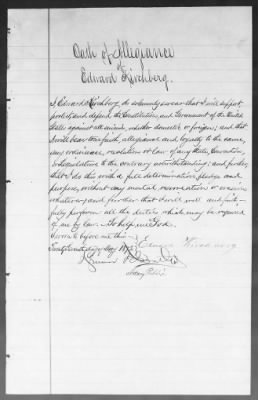 Oath of Allegiance
of
Edward Kirchberg.
I, Edward Kirchberg, do solemnly swear that I will support,
protect, and defend the Constitution, and Government of the United
States against all enemies, whether domestic or foreign; and that
I will bear true faith, allegiance and loyalty to the same,
any ordinance, resolution or law of any State, Convention,
or Legislature to the contrary notwithstanding; and further,
that I do this with a full determination, pledge and
purpose, without any mental reservation or evasion
whatsoever; and further that I will well and faith-
fully perform all the duties which may be required
of me by law. So help me God.
Sworn to before me this
day of May Edward Kirchberg
Notary Public